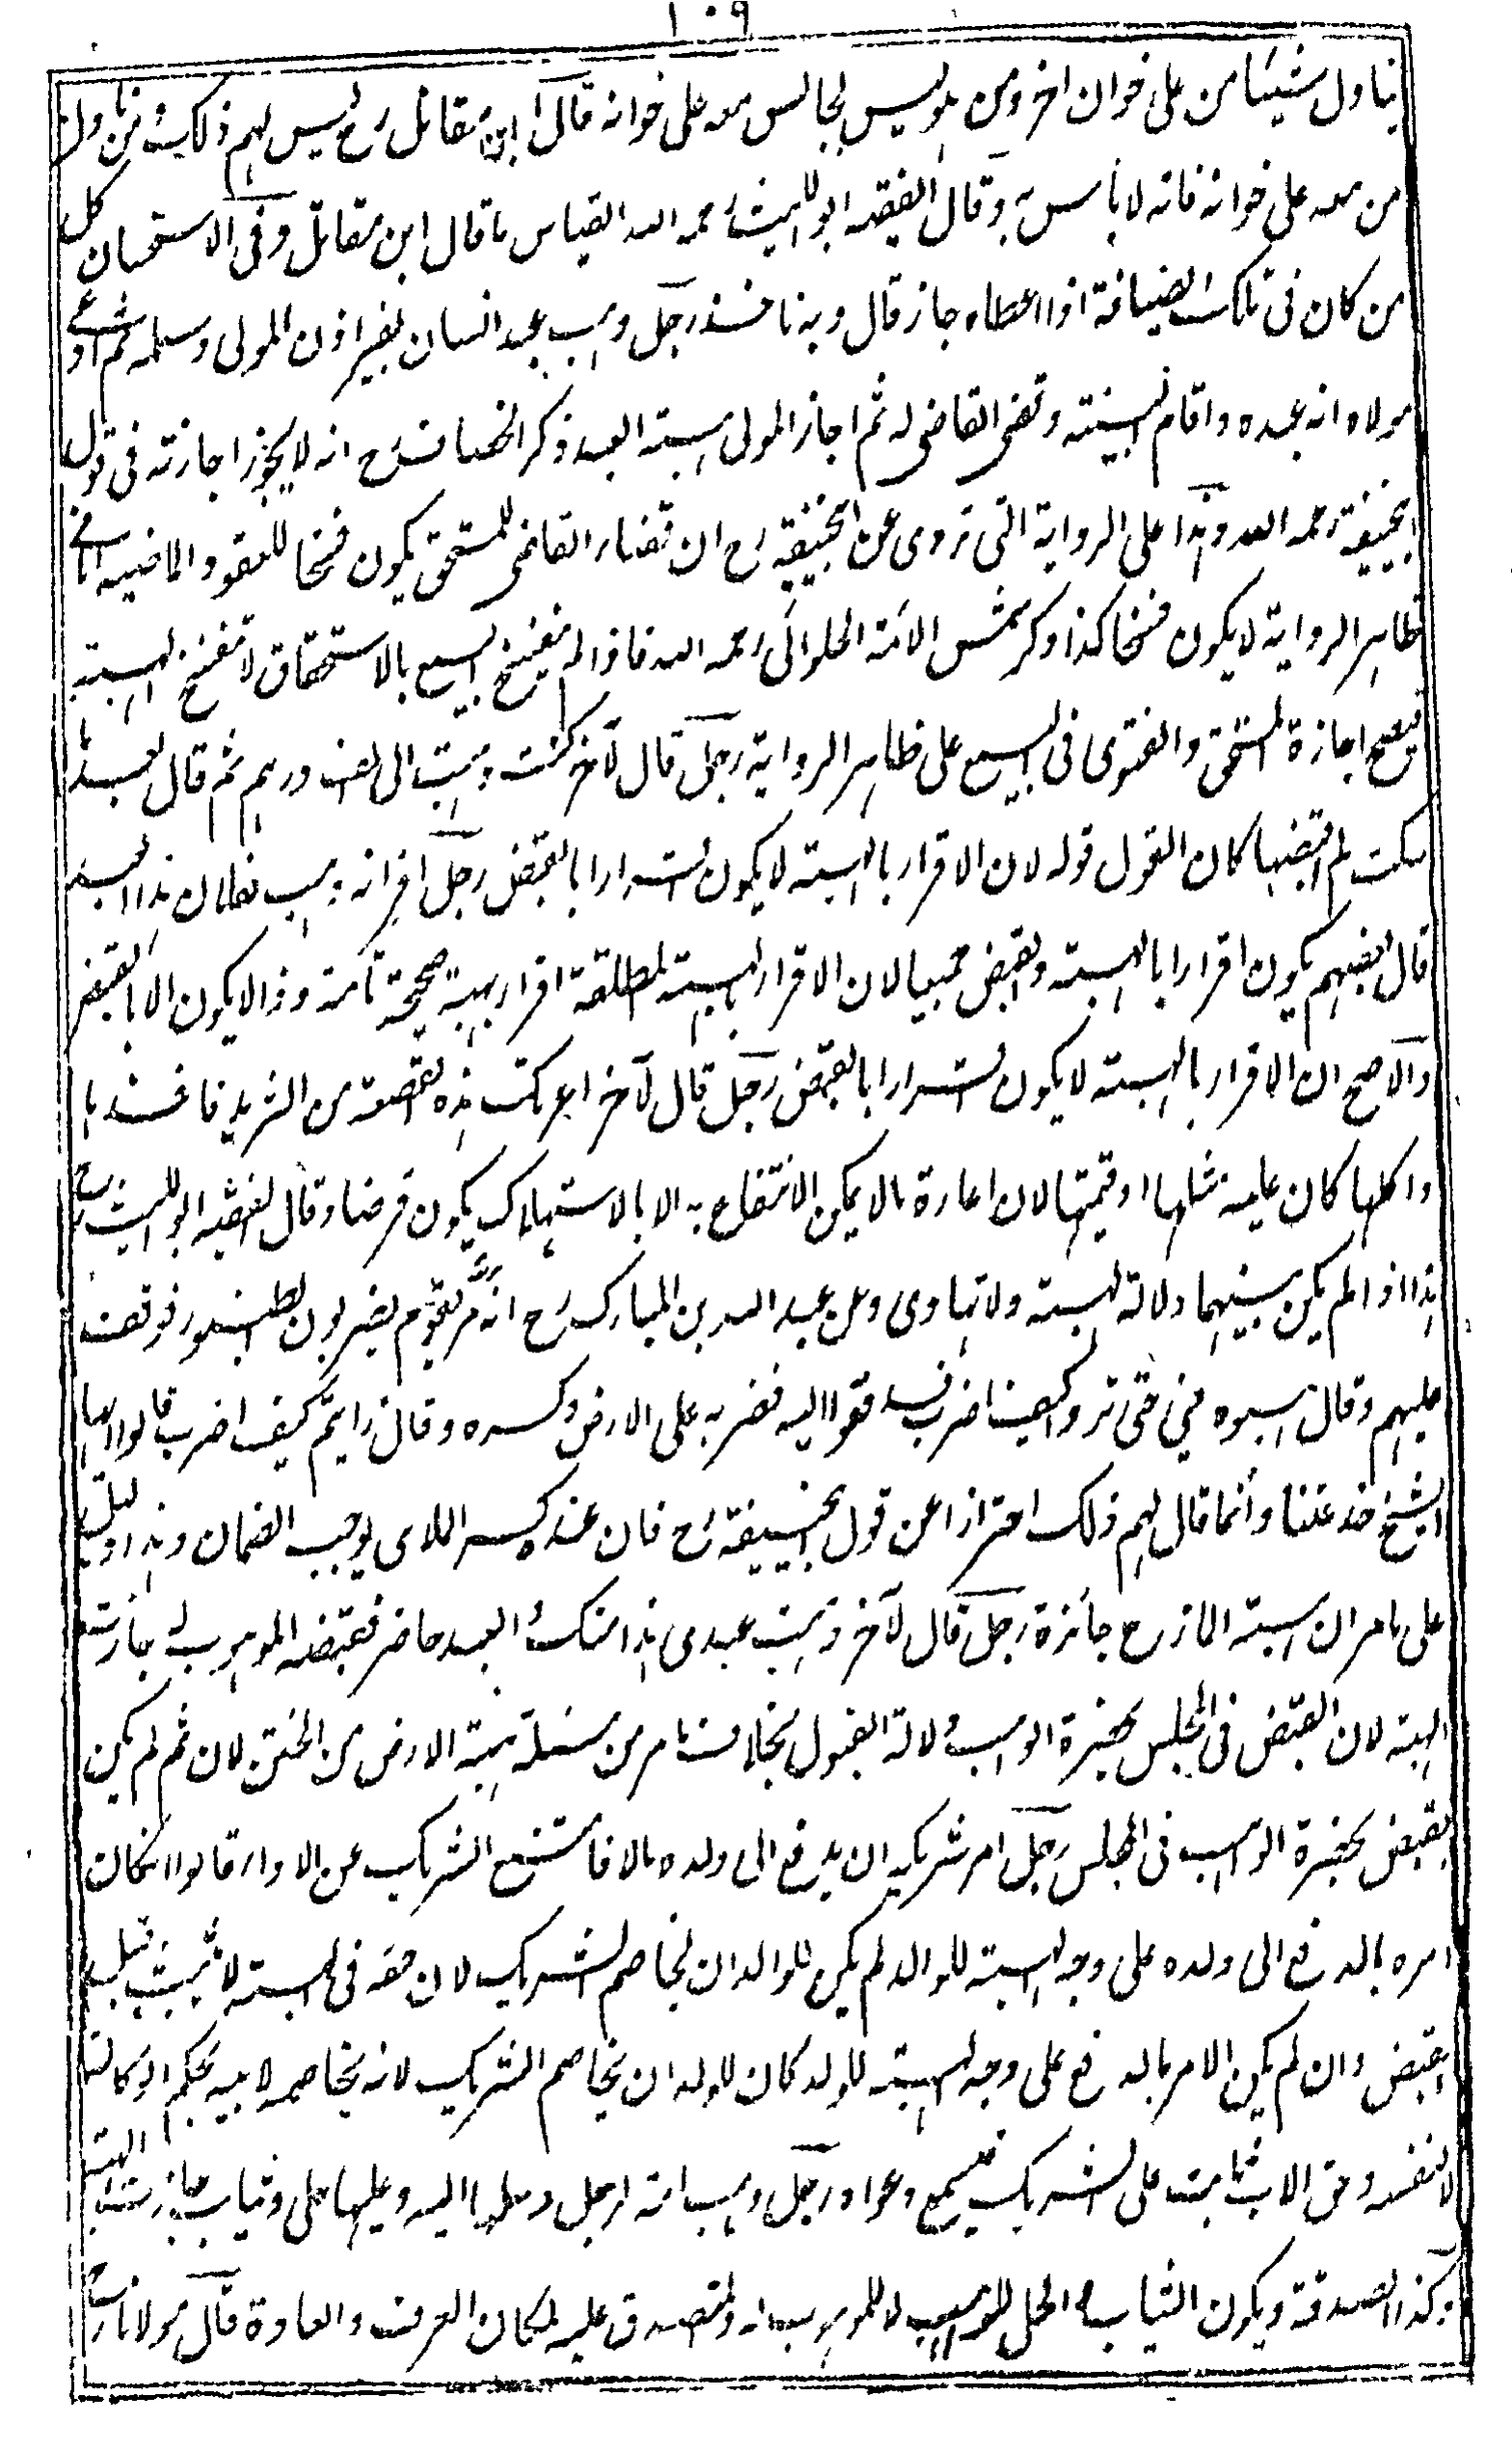 ١٠٩
يناول شيئا من على خوان اخر ومن هو ليس بجالس معه على خوانه قال ابن مقاتل رح ليس لهم ذلك فان ناول
من معه على خوانه فانه لا بأس به وقال الفقيه ابو الليث رحمه الله القياس ما قال ابن مقاتل وفى الاستحسان كل
من كان فى تلك الضيافة اذا اعطاه جاز قال وبه ناخذ رجل وهب عبد انسان بغير اذن المولى وسلمه ثم ادعى
مولاه انه عبده واقام البينة وقضى القاضى له ثم اجاز المولى هبة العبد ذكر الخصاف رح انه لا يجوز اجازته فى قول
ابيحنيفة رحمه الله وهذا على الرواية التى تروى عن ابيحنيفة رح ان قضاء القاضى للمستحق يكون فسخا للعقود الماضية اما فى
ظاهر الرواية لا يكون فسخا كذا ذكر شمس الائمة الحلوائى رحمه الله فاذا لم ينفسخ البيع بالاستحقاق لا تنفسخ الهبة
فتصح اجازة المستحق والفتوى فى البيع على ظاهر الرواية رجل قال لآخر كنت وهبت الى الف درهم ثم قال بعد ما
سكت لم اقبضها كان القول قوله لان الاقرار بالهبة لا يكون اقرارا بالقبض رجل اقر انه وهب لفلان هذا العبد
قال بعضهم يكون اقرارا بالهبة والقبض جميعا لان الاقرار بالهبة المطلقة اقرار بهبة صحيحة تامة وذا لا يكون الا بالقبض
والاصح ان الاقرار بالهبة لا يكون اقرارا بالقبض رجل قال لآخر اعرتك هذه القصعة من الثريد فاخذها
واكلها كان عليه مثلها او قيمتها لان اعارة ما لا يمكن الانتفاع به الا بالاستهلاك يكون قرضا وقال الفقيه ابو الليث رح
هذا اذا لم يكن بينهما دلالة الهبة ولا تهادى وعن عبد الله بن المبارك رح انه مر بقوم يضربون الطنبور فوقف
عليهم وقال هبوه منى حتى تروا كيف اضرب فدفعوا اليه فضربه على الارض وكسره وقال رايتم كيف اضرب قالوا ايها
الشيخ خدعتنا وانما قال لهم ذلك احترازا عن قول ابيحنيفة رح فان عنده كسر الملاهى يوجب الضمان وهذا دليل
على ما مر ان هبة المازح جائزة رجل قال لآخر وهبت عبدى هذا منك والعبد حاضر فقبضه الموهوب له جازت
الهبة لان القبض فى المجلس بحضرة الواهب دلالة القبول بخلاف ما مر من مسئلة هبة الارض من الختن لان ثم لم يكن
القبض بحضرة الواهب فى المجلس رجل امر شريكه ان يدفع الى ولده مالا فامتنع الشريك عن الاداء قالوا انكان
امره بالدفع الى ولده على وجه الهبة للوالد لم يكن للوالد ان يخاصم الشريك لان حقه فى الهبة لا يثبت قبل
القبض وان لم يكن الامر بالدفع على وجه الهبة للولد كان للولد ان يخاصم الشريك لانه يخاصم لابيه بحكم الوكالة
لا لنفسه وحق الاب ثابت على الشريك فيسمع دعواه رجل وهب امة لرجل وسلمها اليه وعليها حلى وثياب جازت الهبة
وكذا الصدقة ويكون الثياب والحلى للواهب لا للموهوب له والمتصدق عليه لمكان العرف والعادة قال مولانا رح